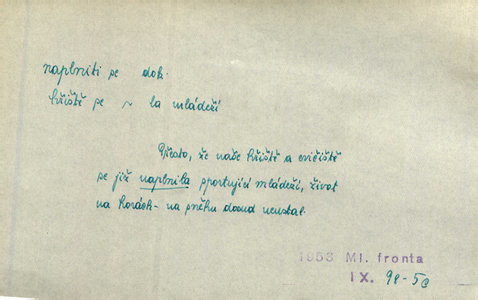 naplniti se dok.
hřiště se ~ la mládeží
Přesto, že naše hřiště a cvičiště
se již naplnila sportující mládeží, život
na horách - na sněhu dosud neustal.
1953 Ml. fronta
IX. 98-5c